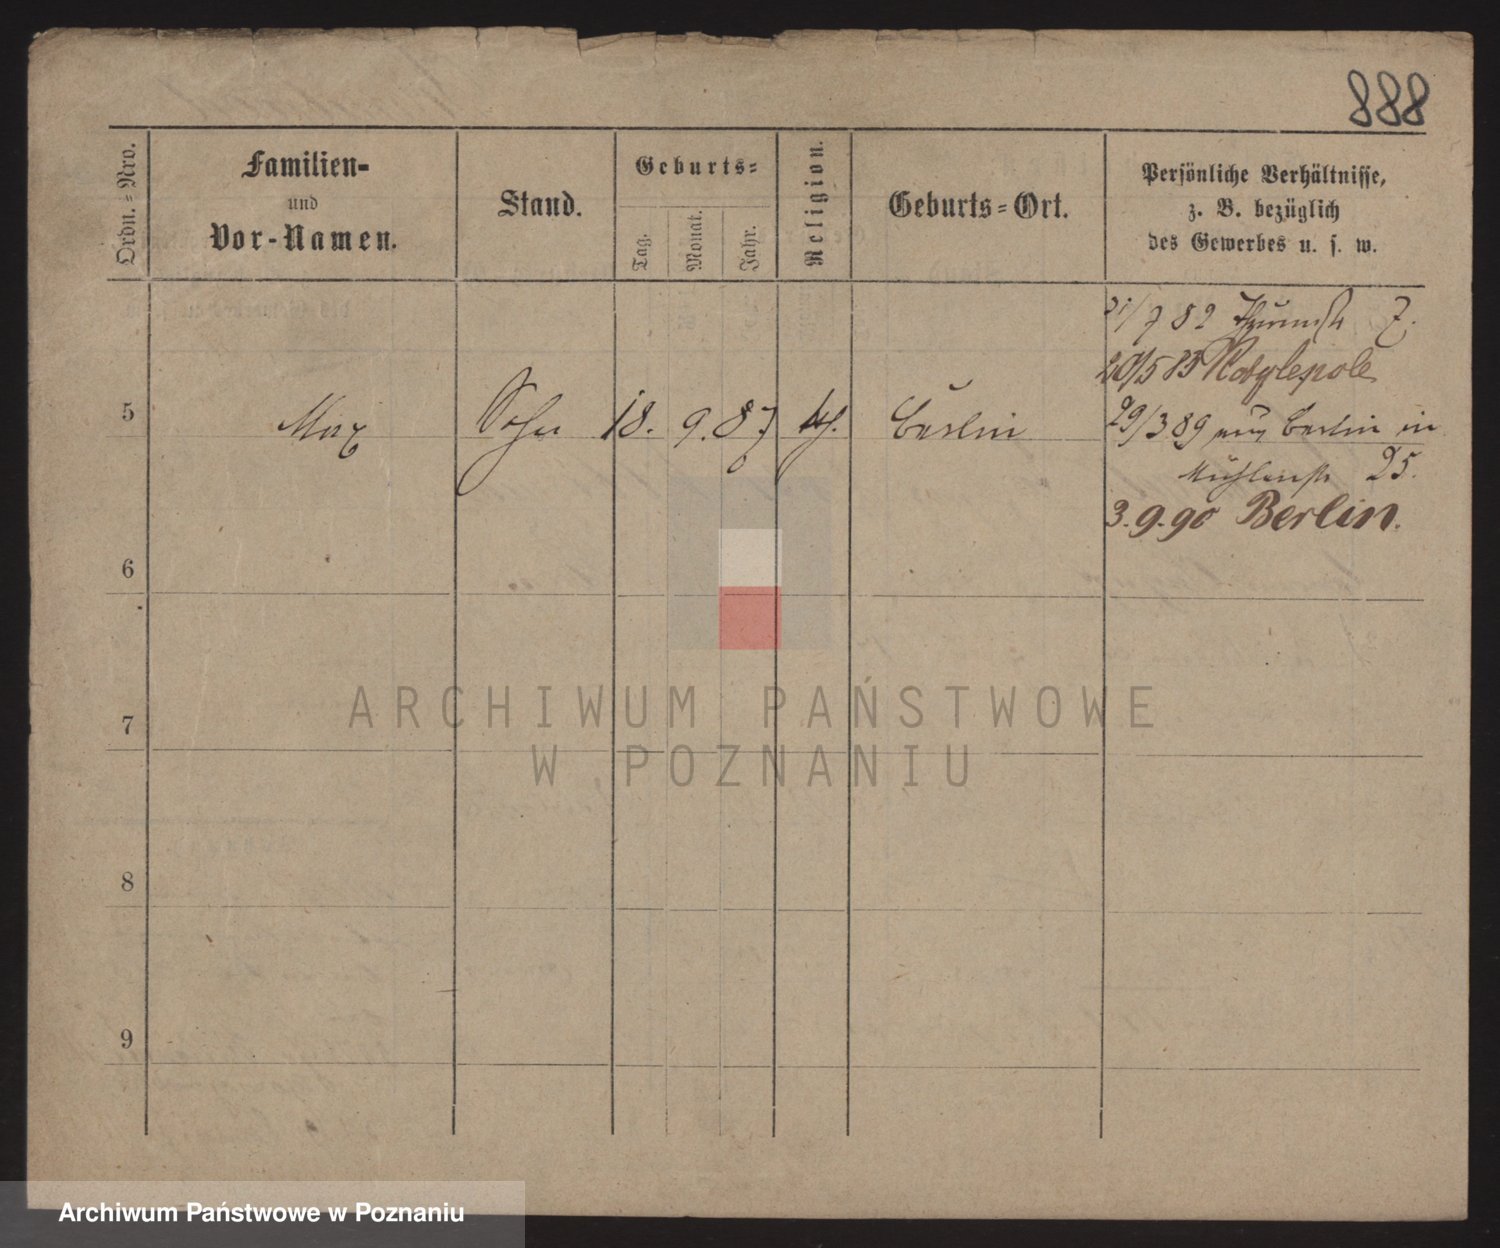 888
Ordn.=Nro.
Familien=
und
Vor-Namen.
Stand.
Geburts=
Tag.
Monat.
Jahr.
Religion.
Geburts=Ort.
Persönliche Verhältnisse,
z. B. bezüglich
des Gewerbes u. s. w.
/7 82 7.
20/5 85 Kobylepole
5 Max Sohn 18. 9. 87 Berlin
29/3 89 aus Berlin in
Mühlenstr 25.
3.9.90 Berlin.
6
7
8
9
ARCHIWUM PAŃSTWOWE
W POZNANIU
Archiwum Państwowe w Poznaniu